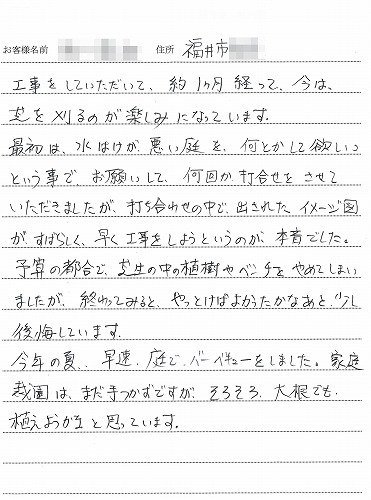 お客様名前 住所 福井市
工事をしていただいて、約1ヶ月経って、今は、
芝を刈るのが楽しみになっています。
最初は、水はけが悪い庭を、何とかして欲しいっ
という事で、お願いして、何回か打合せをさせて
いただきましたが、打ち合わせの中で、出されたイメージ図
が、すばらしく、早く工事をしようというのが、本音でした。
予算の都合で、芝生の中の植樹やベンチをやめてしまい
ましたが、終わってみると、やっとけばよかったかなあと、少し
後悔しています。
今年の夏、早速、庭で、バーベキューをしました。家庭
栽園は、まだ手つかずですが、そろそろ、大根でも、
植えようかなと思っています。